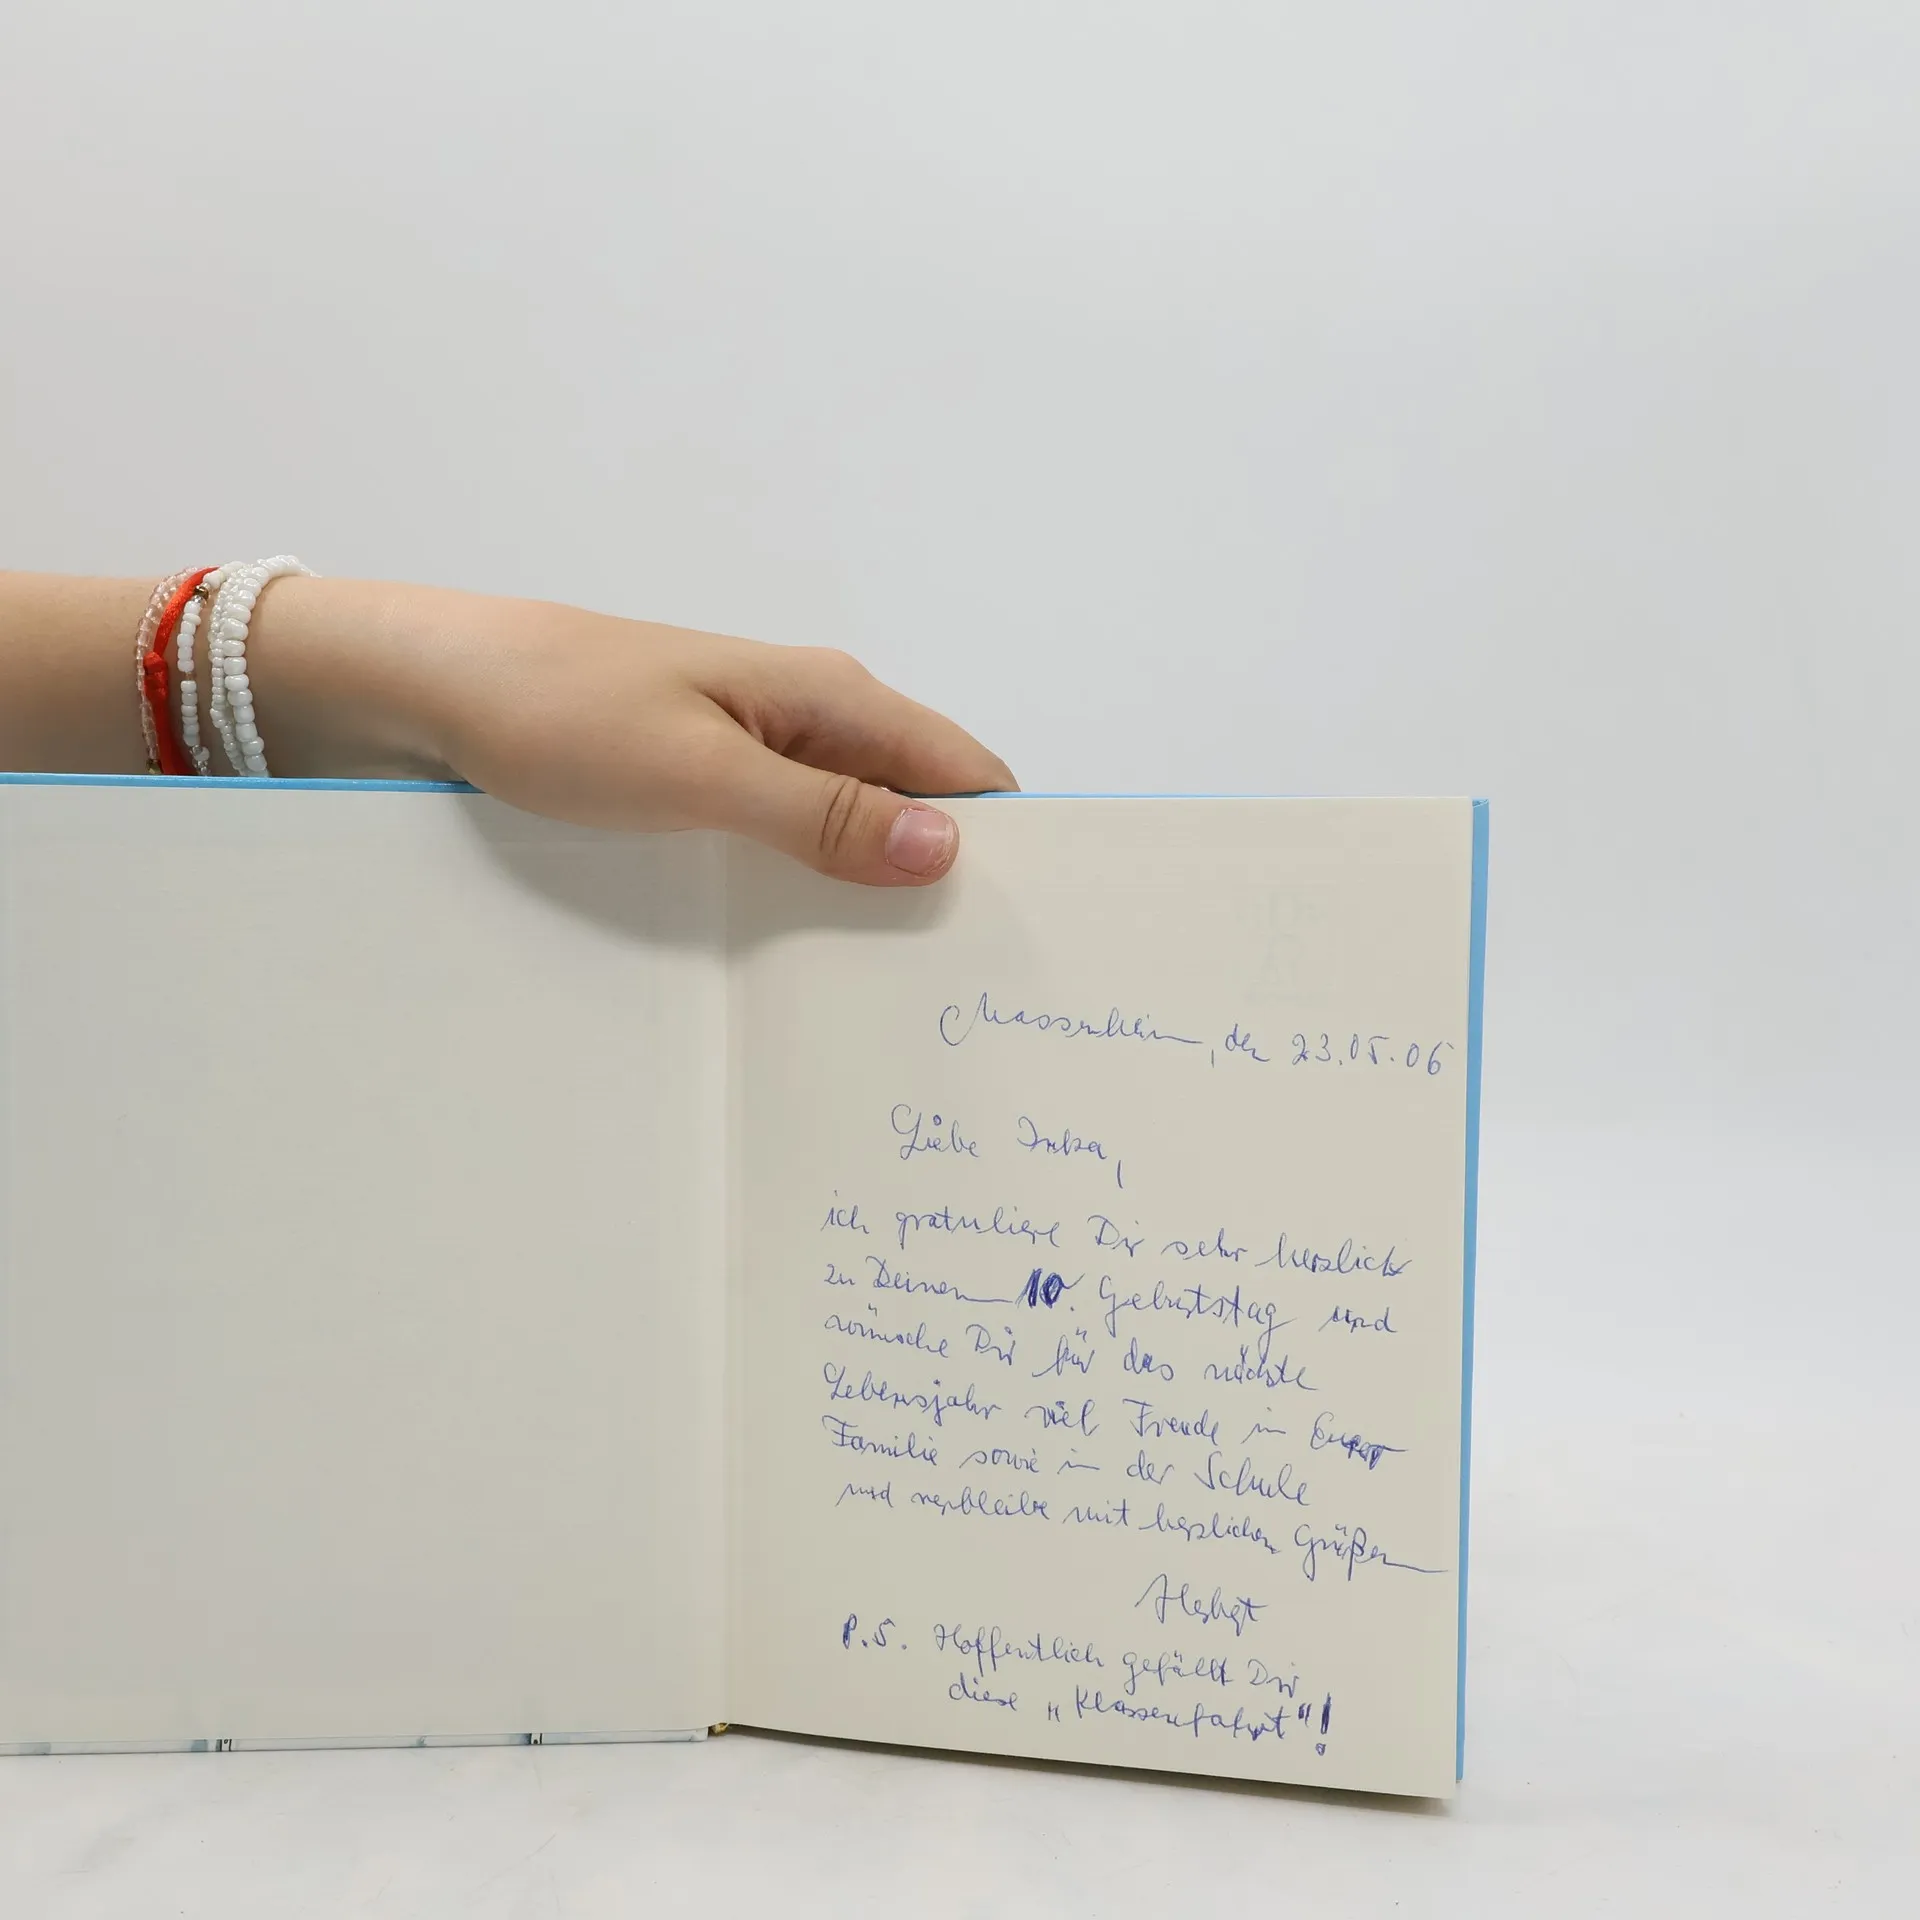 Massenheim, den 23.05.06
Liebe Inka,
ich gratuliere Dir sehr herzlich
zu Deinem 10. Geburtstag und
wünsche Dir für das nächste
Lebensjahr viel Freude in Eurer
Familie sowie in der Schule
und verbleibe mit herzlichen Grüßen
P.S. Hoffentlich gefällt Dir
diese „Klassenfahrt"!